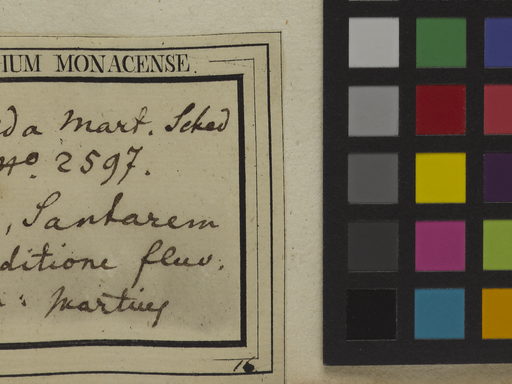 IUM MONACENSE.
da Mart. Sched
No. 2597.
, Santarem
ditione fluv.
: Martius
16